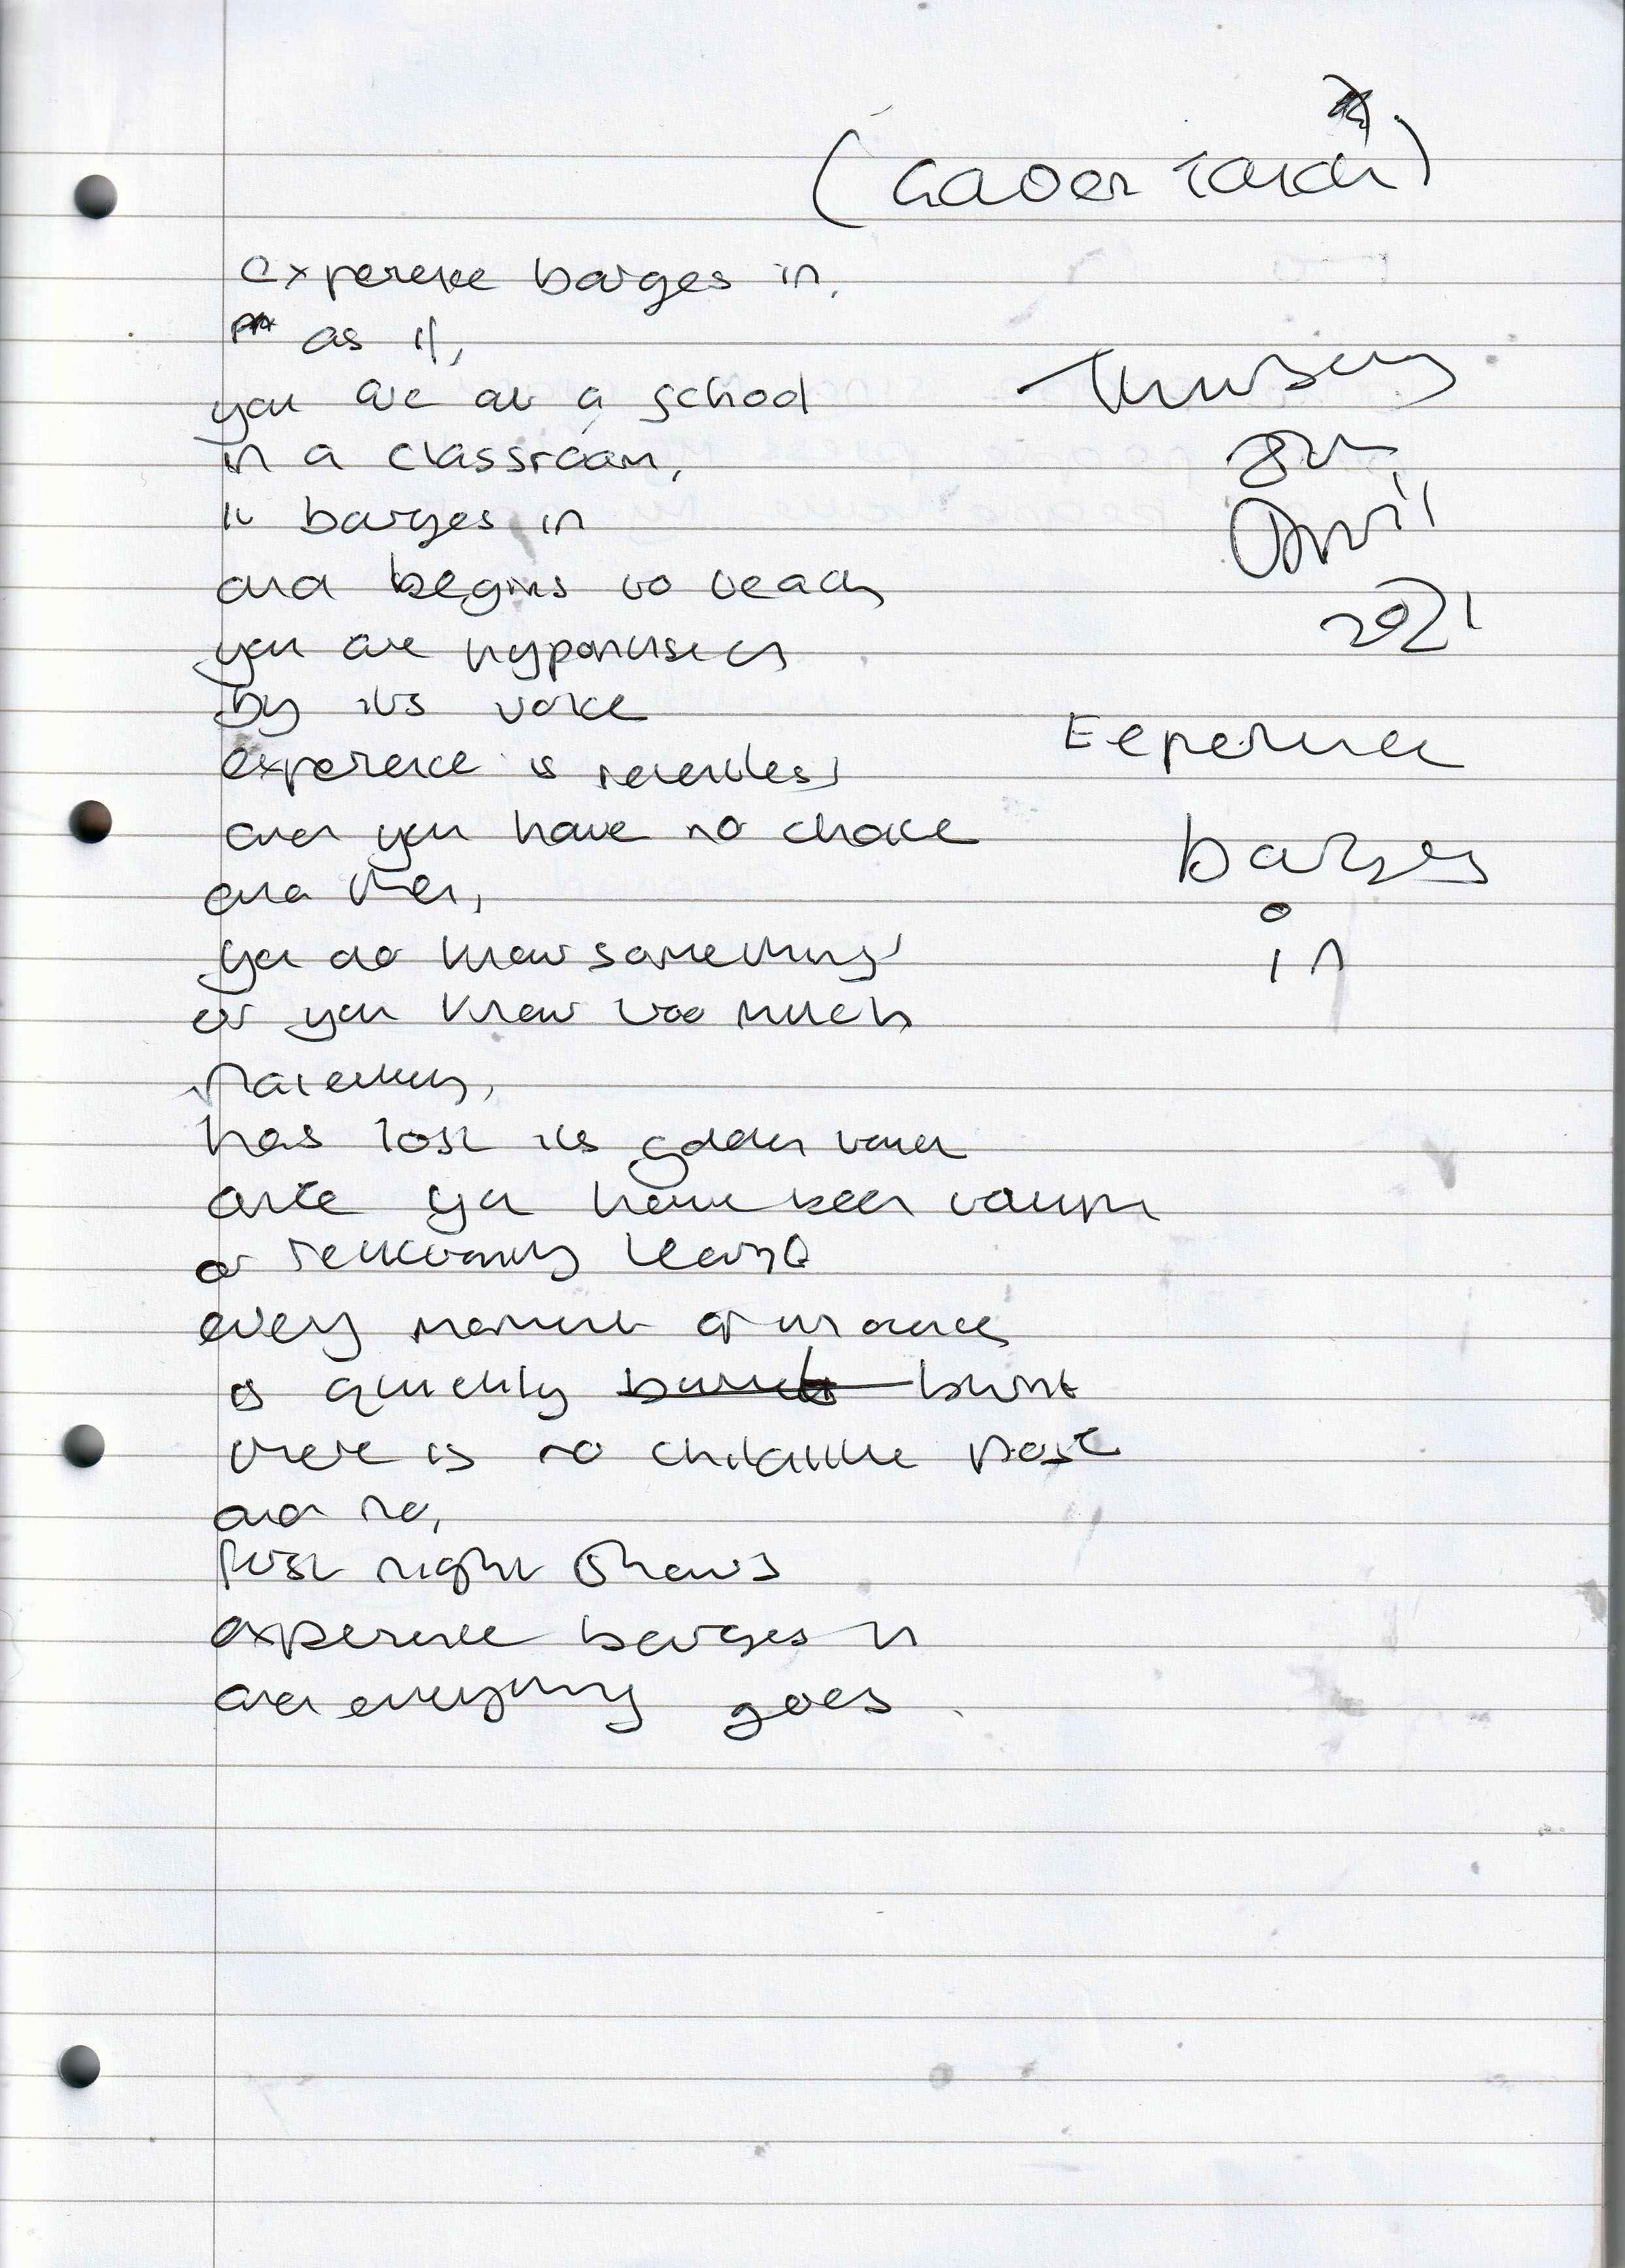 experience barges in,
as if,
you are at a school
in a classroom,
it barges in
and begins to teach
you are hypnotised
by its voice
experience is relentless
and you have no choice
and then,
you do know something
or you know too much
has lost its golden
once you have been
or reluctantly learnt
every moment of
is quickly burnt
there is no childlike past
and no,
first night
experience barges in
and everything goes.
Thursday
8th
April
2021
Experience
barges
in